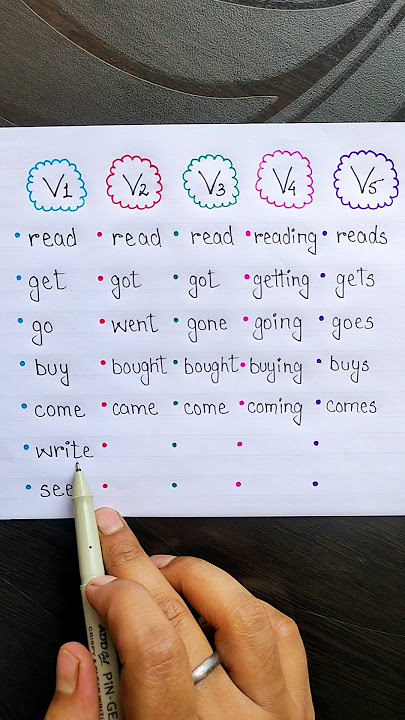 V1 V2 V3 V4 V5
read read read reading reads
get got got getting gets
go went gone going goes
buy bought bought buying buys
come came come coming comes
write
see
ADD Gel PIN-GE